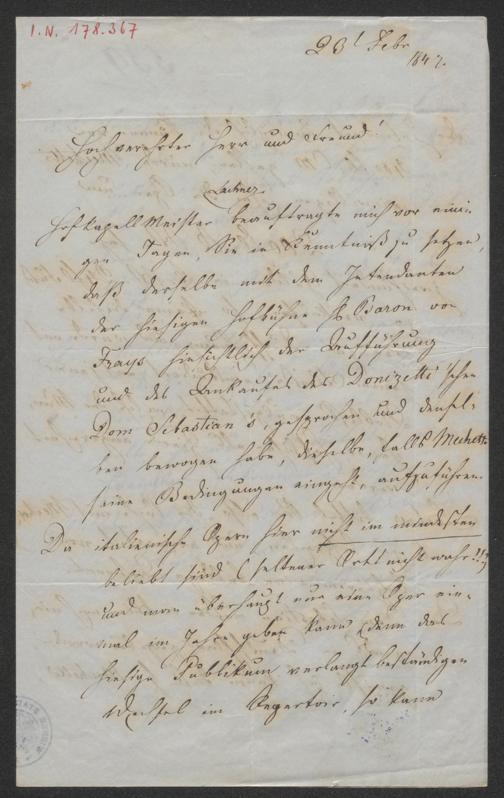 I.N. 178.367
23t Febr
1847.
Hochverehrter Herr und Freund!
Lachner
Hofkapell Meister beauftragte mich vor eini-
gen Tagen, Sie in Kenntniß zu setzen,
daß derselbe mit dem Intendanten
der hiesigen Hofbühne H Baron von
Frays hinsichtlich der Aufführung
und des Ankaufes des Donizetti'schen
Dom Sebastian's, gesprochen und densel-
ben bewogen habe, dieselbe, falls Mechetti
seine Bedingungen eingeht, aufzuführen.
Da italienische Opern hier nicht im mindesten
beliebt sind (seltener Ort nicht wahr!!!)
und man überhaupt nur eine Oper ein-
mal im Jahre geben kann (denn das
hiesige Publikum verlangt beständigen
Wechsel im Repertoir, so kann